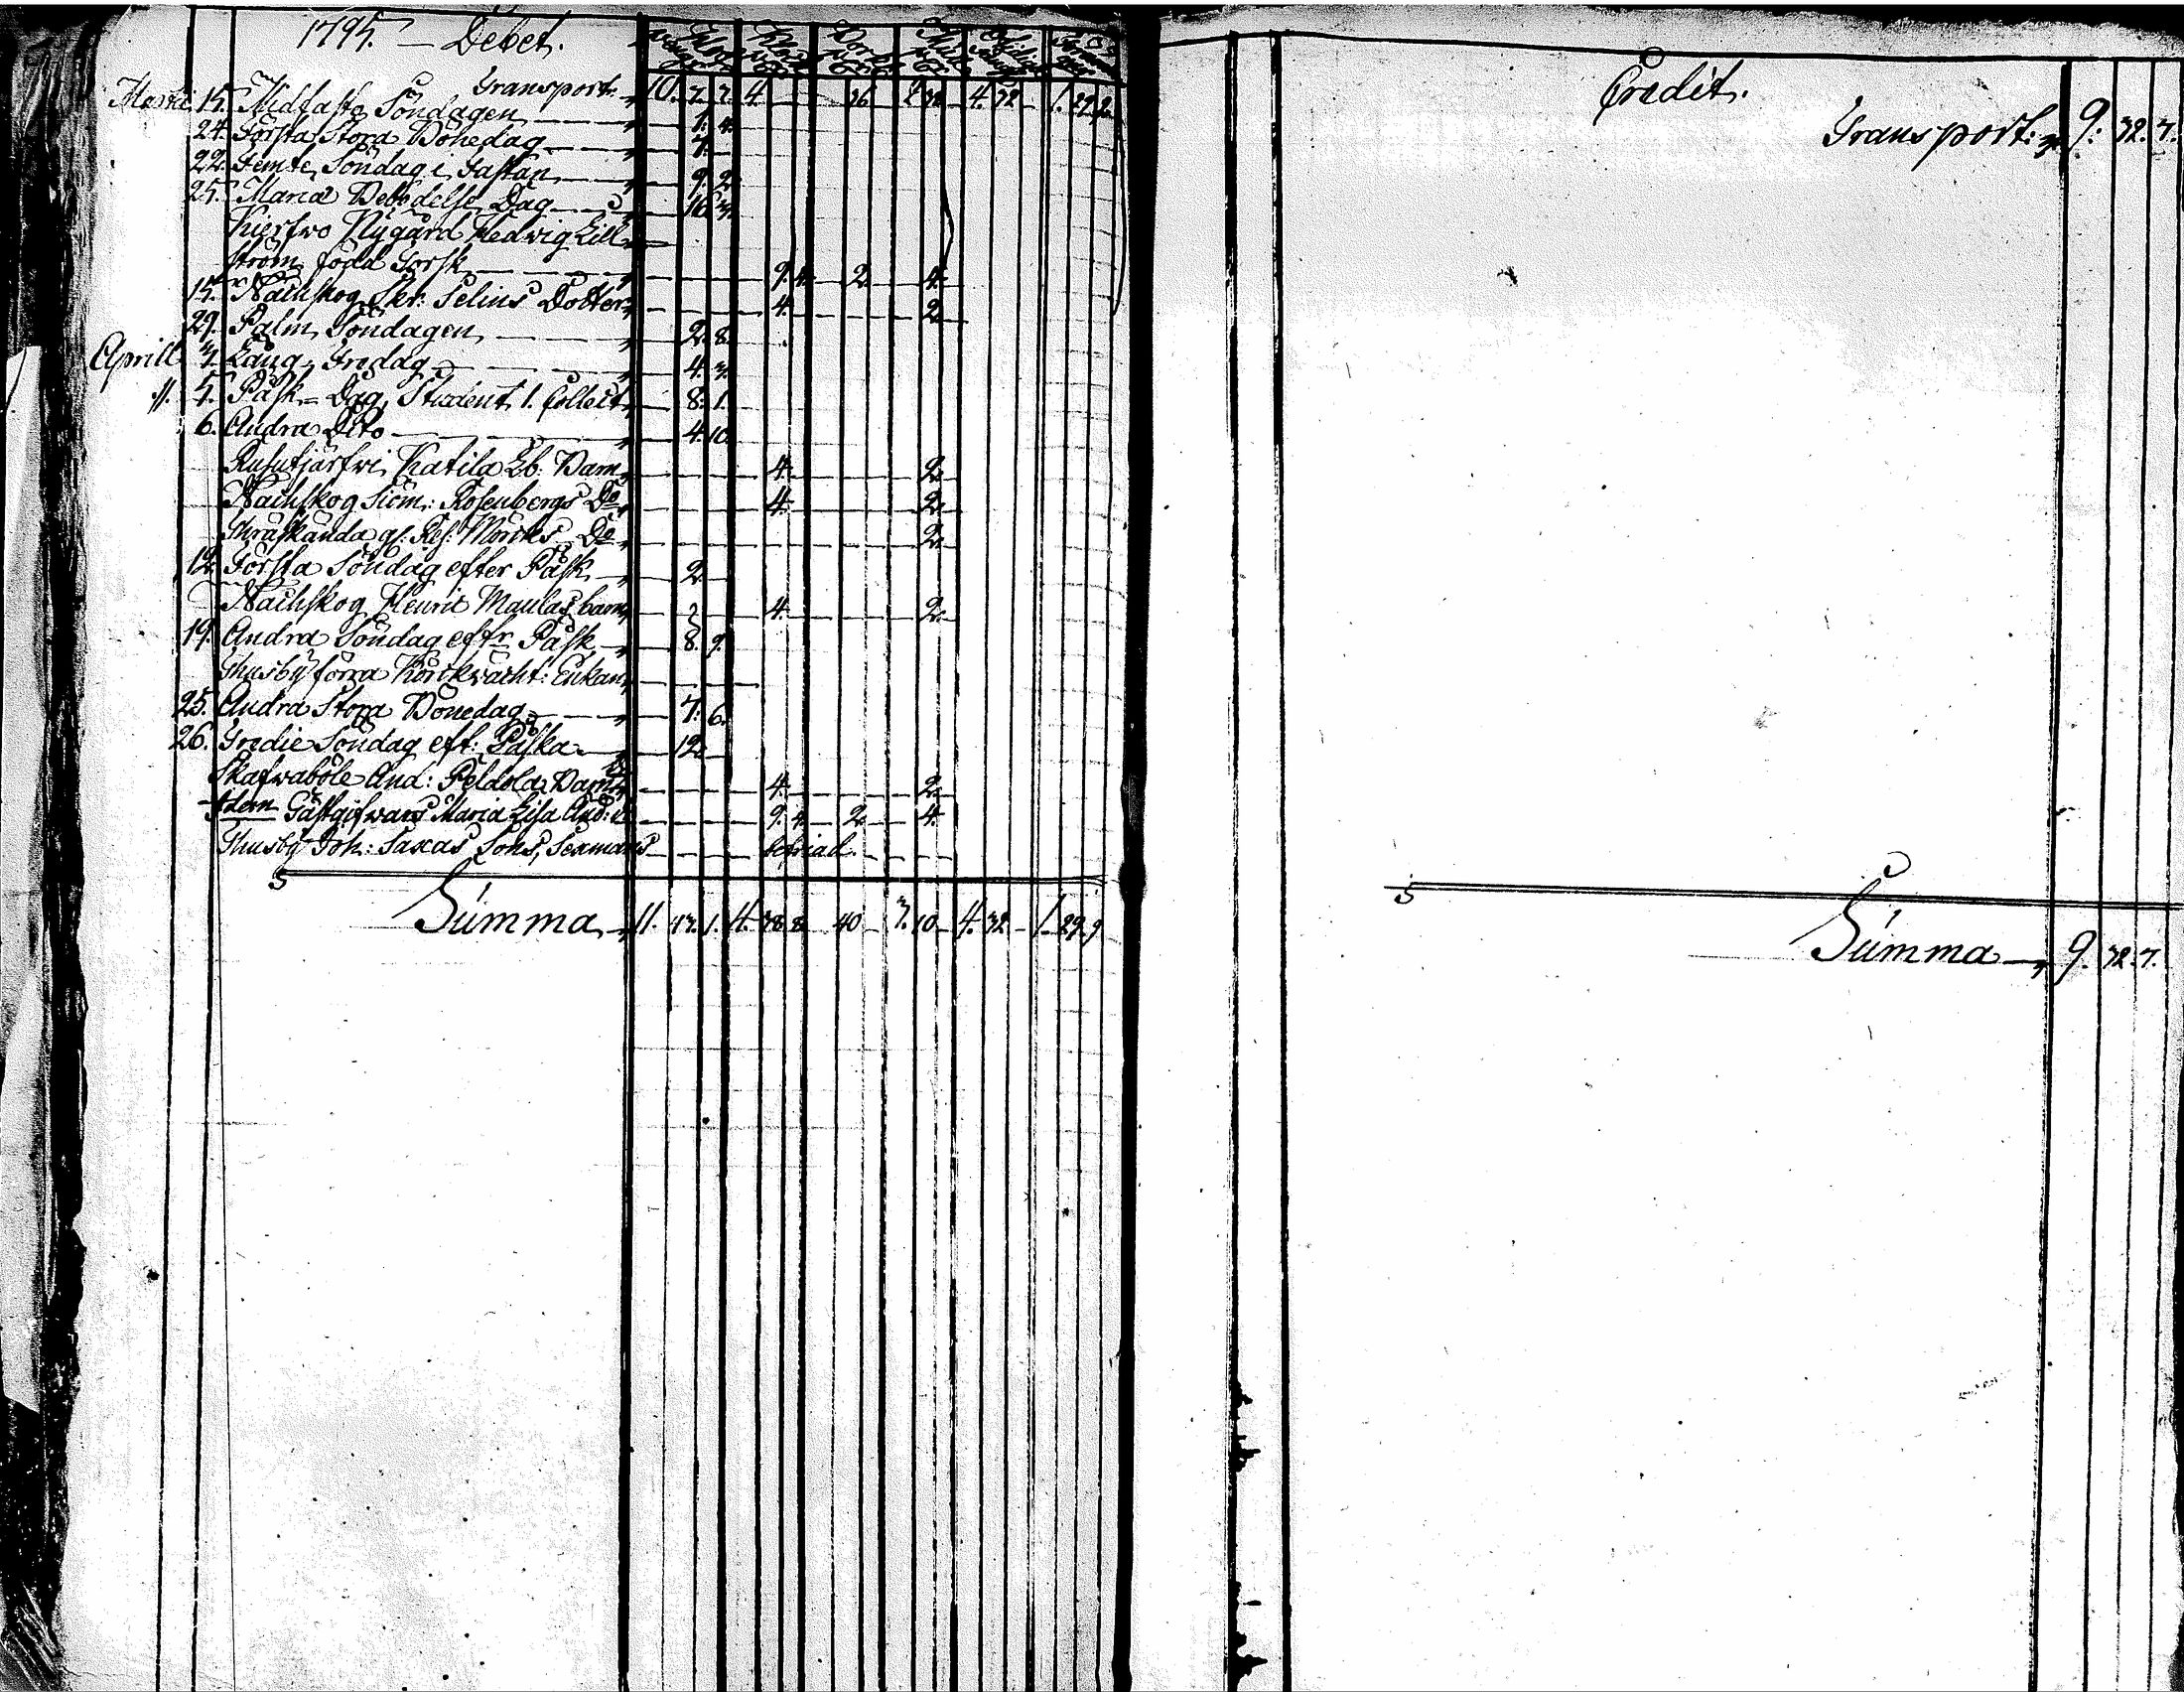 1795. — Debet.
Transport 10. 7. 7. 4. 36 2 32 4. 32 1. 29. 9
Martii 15. Midfasto Söndagen 1. 4.
24. Första Stora Bönedag 7.
22. Femte Söndag i Fastan 9. 2
25. Mariæ Bebådelse Dag 16. 3.
Kierfwo Nygård Hedwig Lill
ström född Forsk 9. 4. 2 4.
15. Nachskog Skr: Selins Dotter 4. 2
29. Palm Söndagen 2. 8.
Aprill 3. Lång Fredag 4. 3.
5. Påsk-Dag, Student 1. Collect 8. 1.
6. Andra Dito 4. 10.
Rusutjärfwi Katila Eb: Barn 4. 2
Nachskog Siöm: Rosenbergs Do 4. 2.
Thräskända gf: Do 2.
12. Första Söndag efter Påsk 2
Nachskog Henric Maulas barn 4. 2.
19. Andra Söndag eftr Påsk 8. 9.
Thusby förra Enkan
25. Andra Stora Bönedag 7. 6.
26. Tredie Söndag eft: Påska 12
Skafwaböle And: Peldola Barn 4. 2
Idem Gästgifwars Maria Lisa And: 9. 4. 2 4.
Thusby Joh: Saxas Sons, Sexmans befriad.
Summa 11. 43. 1. 4. 38. 8 40 3. 10 4. 32 1. 29. 9
Credit.
Transport: 9: 32. 7.
Summa 9. 32. 7.